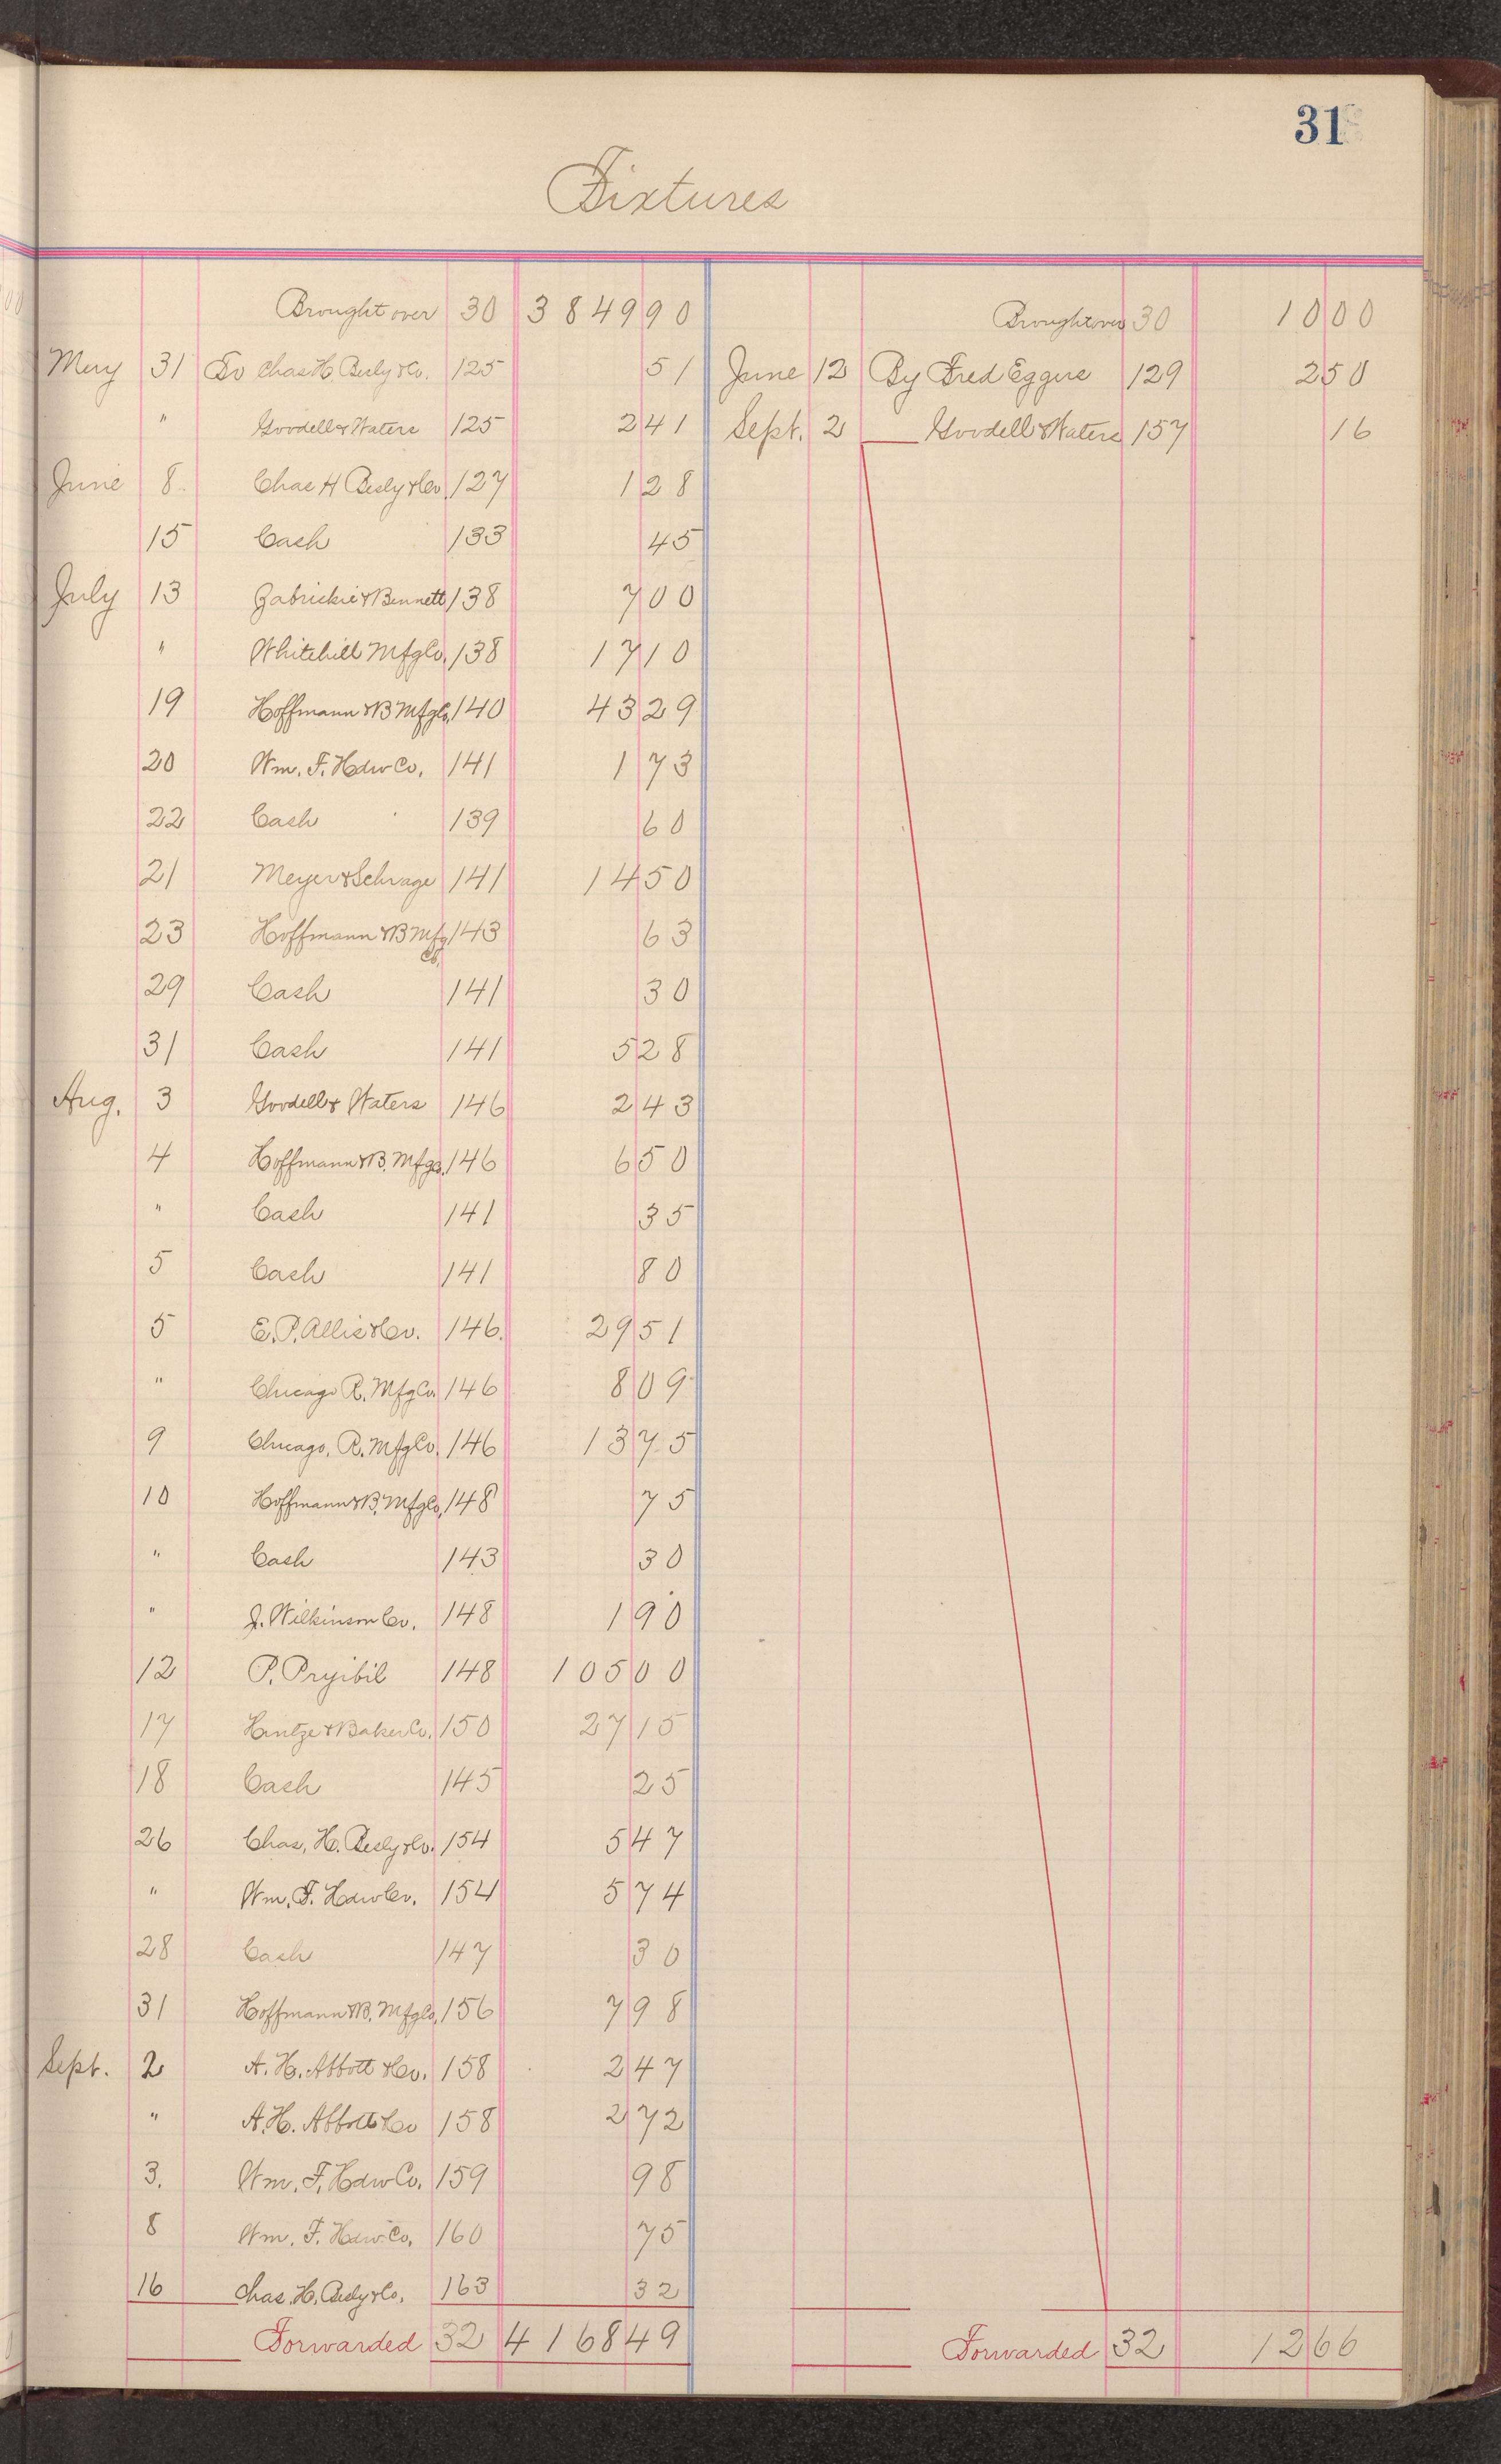 31
Fixtures
Brought over 30 3849 90 Brought over 30 10 00
May 31 To Chas H. Besly & Co. 125 51 June 12 By Fred Eggers 129 2 50
" Goodell & Waters 125 2 41 Sept. 2 Goodell & Waters 157 16
June 8 Chas H Besly & Co. 127 1 28
15 Cash 133 45
July 13 & Bennett 138 7 00
" Whitehill Mfg Co. 138 17 10
19 Hoffmann & B Mfg Co. 140 43 29
20 Wm. F. Hdw Co. 141 1 73
22 Cash 139 60
21 Meyer & Schrage 141 14 50
23 Hoffmann & B Mfg Co. 143 63
29 Cash 141 30
31 Cash 141 5 28
Aug. 3 Goodell & Waters 146 2 43
4 Hoffmann & B. Mfg Co. 146 6 50
" Cash 141 35
5 Cash 141 80
5 E. P. Allis & Co. 146. 29 51
" Chicago R. Mfg Co. 146 8 09
9 Chicago, R. Mfg Co. 146 13 75
10 Hoffmann & B. Mfg Co. 148 75
" Cash 143 30
" J. Wilkinson Co. 148 1 90
12 P. Pryibil 148 105 00
17 Hintze & Baker Co. 150 27 15
18 Cash 145 25
26 Chas, H. Besly & Co. 154 5 47
" Wm. F. Hdw Co. 154 5 74
28 Cash 147 30
31 Hoffmann & B. Mfg Co. 156 7 98
Sept. 2 A. H. Abbott & Co. 158 2 47
" A. H. Abbott & Co 158 2 72
3. Wm. F. Hdw Co. 159 98
8 Wm. F. Hdw. Co. 160 75
16 Chas. H. Besly & Co. 163 32
Forwarded 32 4168 49 Forwarded 32 12 66